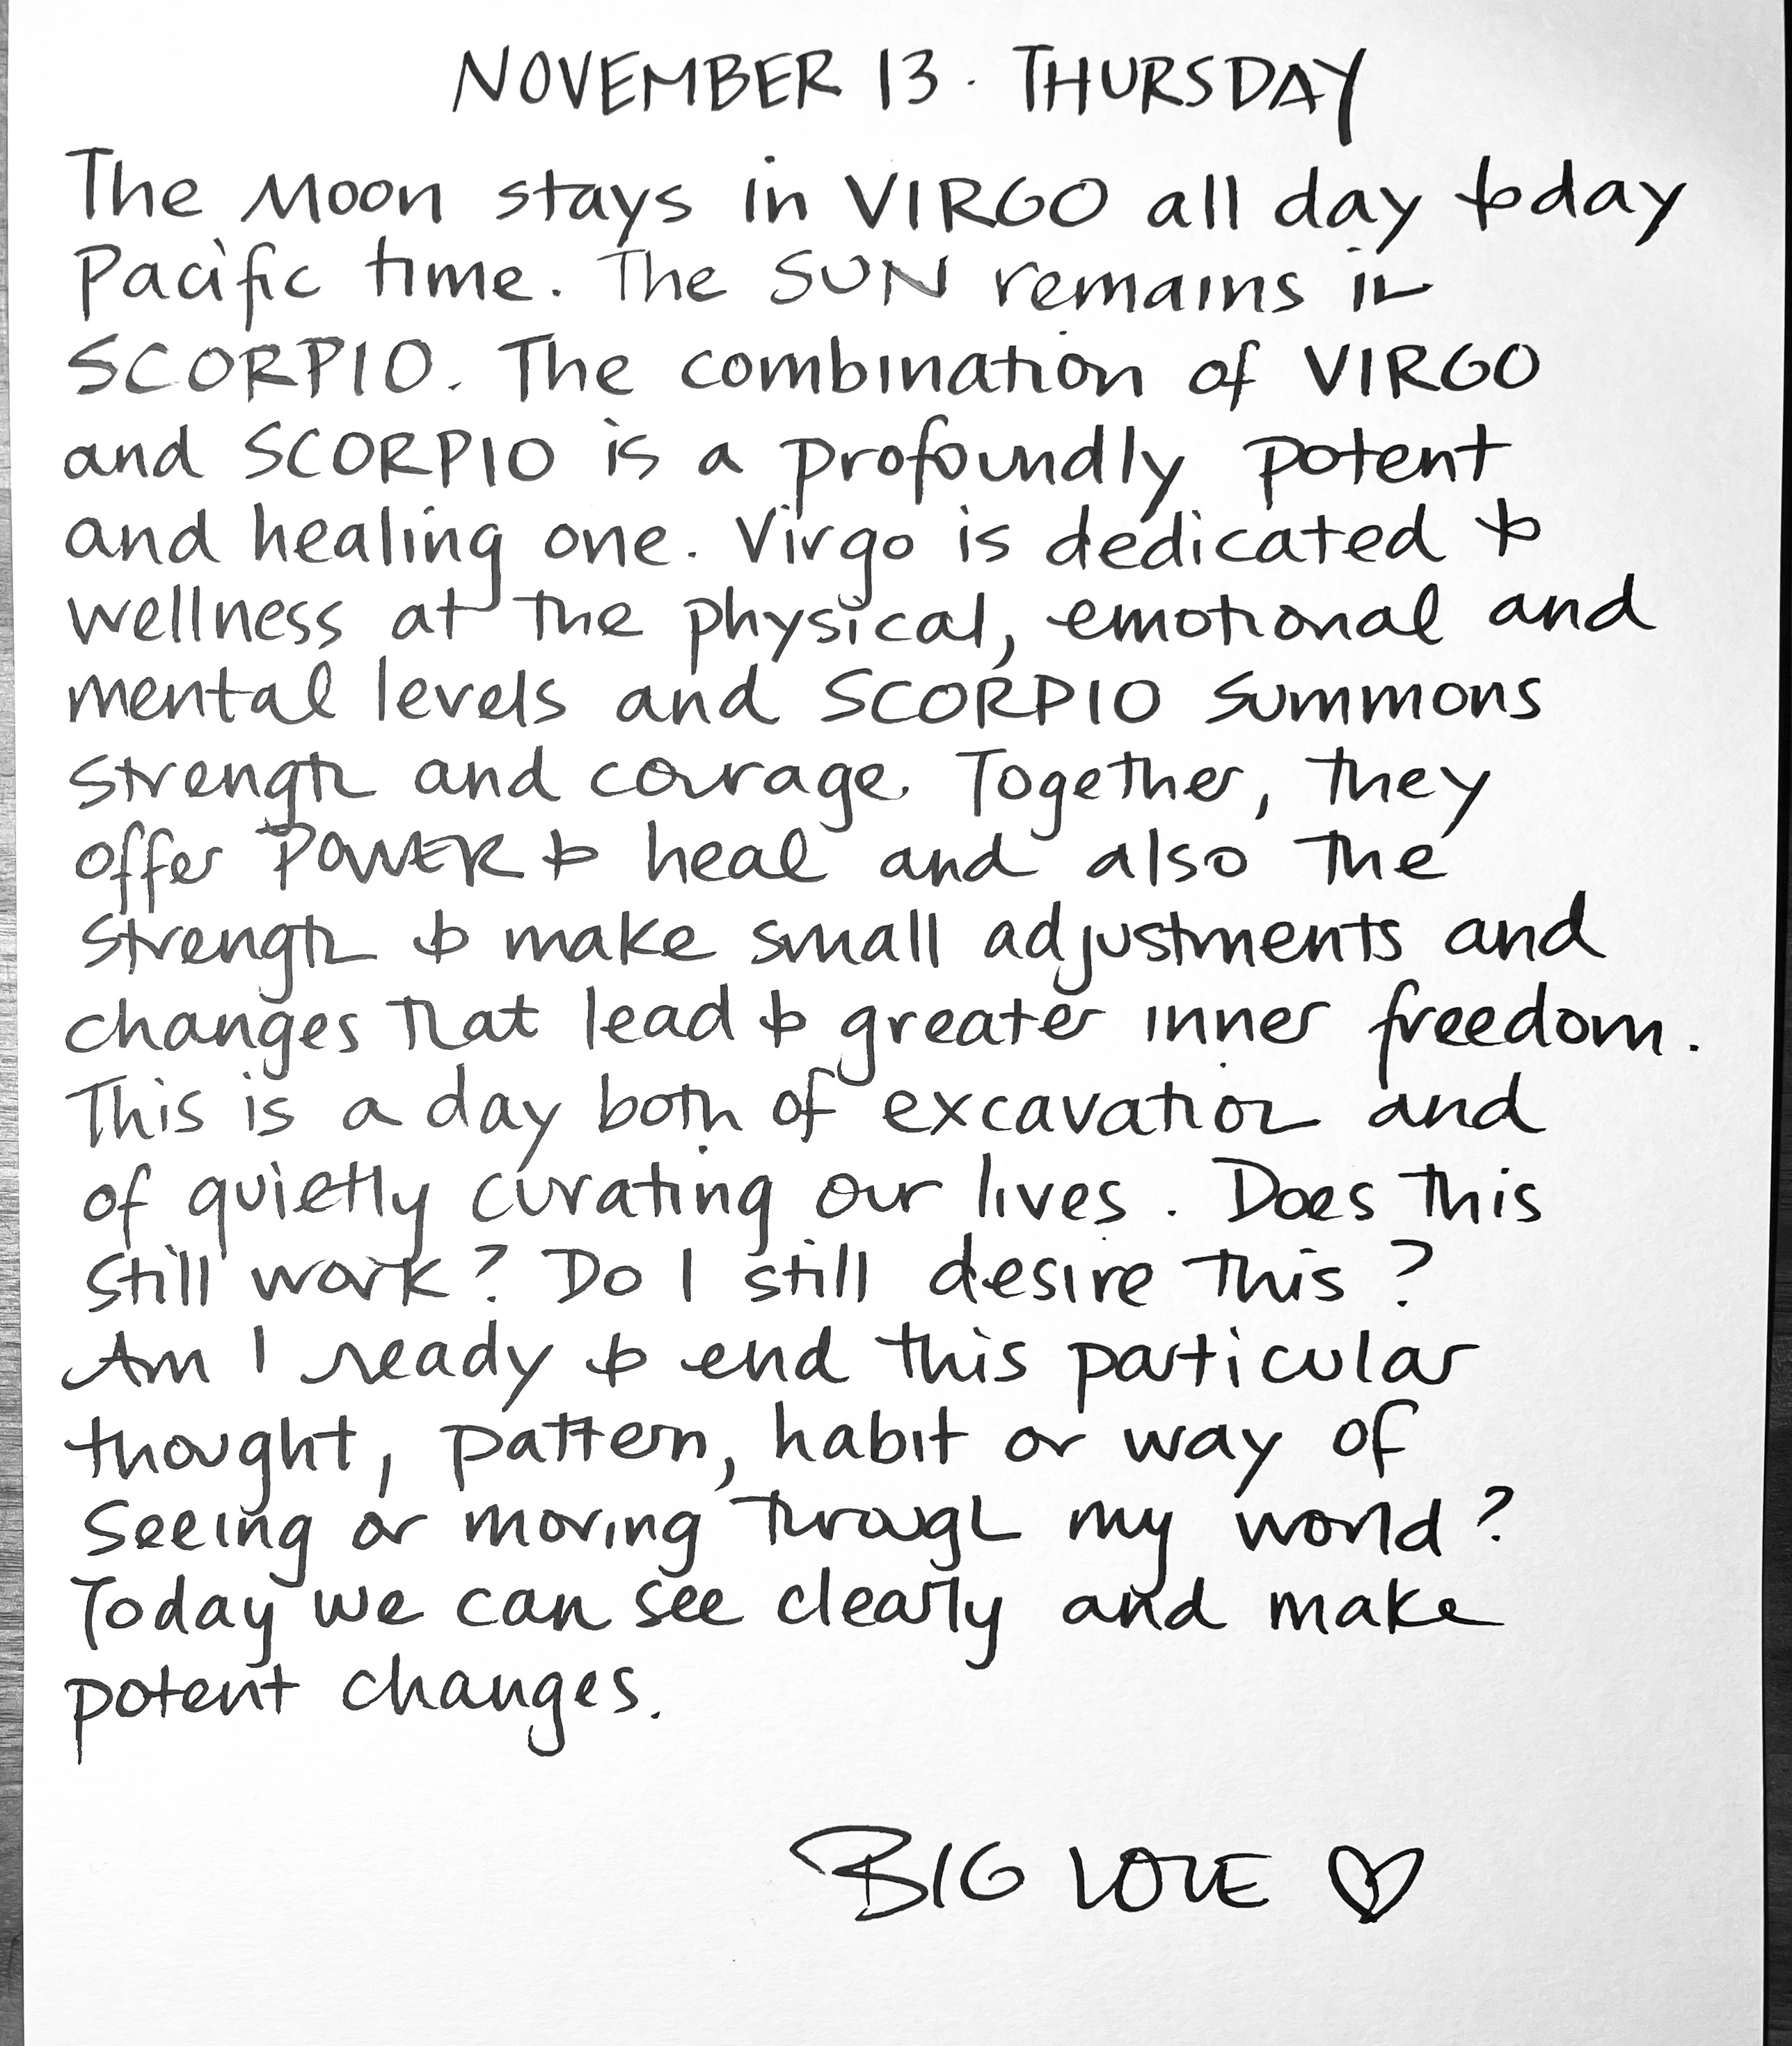 NOVEMBER 13 · THURSDAY
The Moon stays in VIRGO all day today
Pacific time. The SUN remains in
SCORPIO. The combination of VIRGO
and SCORPIO is a profoundly potent
and healing one. Virgo is dedicated to
wellness at the physical, emotional and
mental levels and SCORPIO summons
strength and courage. Together, they
offer POWER to heal and also the
strength to make small adjustments and
changes that lead to greater inner freedom.
This is a day both of excavation and
of quietly curating our lives. Does this
still work? Do I still desire this?
Am I ready to end this particular
thought, pattern, habit or way of
seeing or moving through my world?
Today we can see clearly and make
potent changes.
BIG LOVE ♡